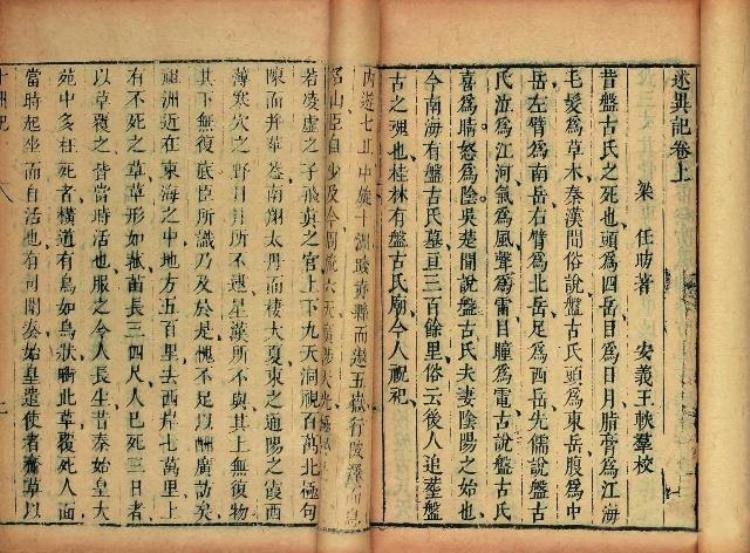 述異記卷上
梁 任昉著 安義王軼羣校
昔盤古氏之死也頭爲四岳目爲日月脂膏爲江海
毛髮爲草木秦漢間俗說盤古氏頭爲東岳腹爲中
岳左臂爲南岳右臂爲北岳足爲西岳先儒說盤古
氏泣爲江河氣爲風聲爲雷目瞳爲電古說盤古氏
喜爲晴怒爲陰吳楚間說盤古氏夫妻陰陽之始也
今南海有盤古氏墓亘三百餘里俗云後人追葬盤
古之魂也桂林有盤古氏廟今人祝祀
內遊七丘中旋十洲踐赤縣而遨五嶽行陂澤而息
名山臣自少及今周流六天廣陟天光極
若凌虛之子飛眞之官上下九天洞視百萬北極句
陳而并華蓋南翔太丹而棲大夏東之通陽之霞西
薄寒穴之野日月所不逮星漢所不與其上無復物
其下無復底臣所識乃及於是愧不足以酬廣訪矣
祖洲近在東海之中地方五百里去西岸七萬里上
有不死之草草形如菰苗長三四尺人已死三日者
以草覆之皆當時活也服之令人長生昔秦始皇大
苑中多枉死者橫道有鳥如烏狀啣此草覆死人面
當時起坐而自活也有司聞奏始皇遣使者齎草以
十洲記